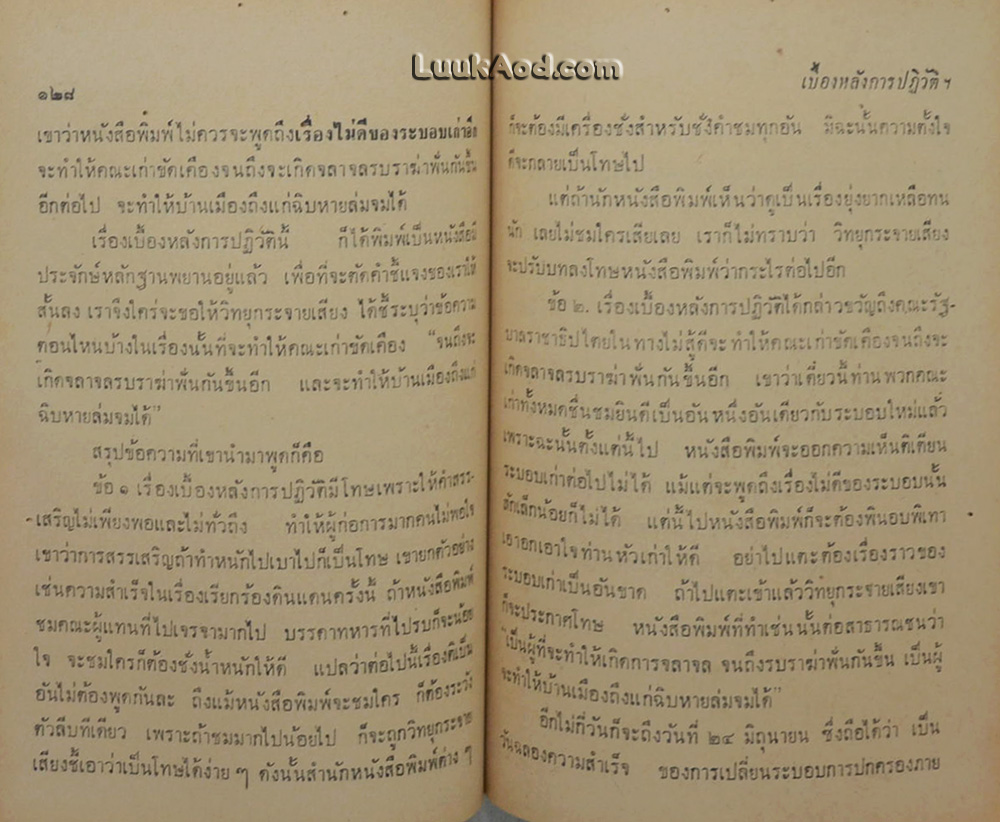 LuukAod.com
๑๒๘
เขาว่าหนังสือพิมพ์ไม่ควรจะพูดถึงเรื่องไม่ดีของระบอบเก่าอีก
จะทำให้คณะเก่าขัดเคืองจนถึงจะเกิดจลาจลรบราฆ่าฟั่นกันขึ้น
อีกต่อไป จะทำให้บ้านเมืองถึงแก่ฉิบหายล่มจมได้
เรื่องเบื้องหลังการปฏิวัตินี้ ก็ได้พิมพ์เป็นหนังสือมี
ประจักษ์หลักฐานพยานอยู่แล้ว เพื่อที่จะตัดคำชี้แจงของเราให้
สั้นลง เราจึงใคร่จะขอให้วิทยุกระจายเสียง ได้ชี้ระบุว่าข้อความ
ตอนไหนบ้างในเรื่องนั้นที่จะทำให้คณะเก่าขัดเคือง “จนถึงจะ
เกิดจลาจลรบราฆ่าฟั่นกันขึ้นอีก และจะทำให้บ้านเมืองถึงแก่
ฉิบหายล่มจมได้”
สรุปข้อความที่เขานำมาพูดก็คือ
ข้อ ๑ เรื่องเบื้องหลังการปฏิวัติมีโทษเพราะให้คำสรร-
เสริญไม่เพียงพอและไม่ทั่วถึง ทำให้ผู้ก่อการมากคนไม่พอใจ
เขาว่าการสรรเสริญถ้าทำหนักไปเบาไปก็เป็นโทษ เขายกตัวอย่าง
เช่นความสำเร็จในเรื่องเรียกร้องดินแดนครั้งนี้ ถ้าหนังสือพิมพ์
ชมคณะผู้แทนที่ไปเจรจามากไป บรรดาทหารที่ไปรบก็จะน้อย
ใจ จะชมใครก็ต้องชั่งน้ำหนักให้ดี แปลว่าต่อไปนี้เรื่องติเป็น
อันไม่ต้องพูดกันละ ถึงแม้หนังสือพิมพ์จะชมใคร ก็ต้องระวัง
ตัวลีบทีเดียว เพราะถ้าชมมากไปน้อยไป ก็จะถูกวิทยุกระจาย
เสียงชี้เอาว่าเป็นโทษได้ง่าย ๆ ดังนั้นสำนักหนังสือพิมพ์ต่าง ๆ
เบื้องหลังการปฏิวัติ ฯ
ก็จะต้องมีเครื่องชั่งสำหรับชั่งคำชมทุกอัน มิฉะนั้นความตั้งใจ
ดีจะกลายเป็นโทษไป
แต่ถ้านักหนังสือพิมพ์เห็นว่าดูเป็นเรื่องยุ่งยากเหลือทน
นัก เลยไม่ชมใครเสียเลย เราก็ไม่ทราบว่า วิทยุกระจายเสียง
จะปรับบทลงโทษหนังสือพิมพ์ว่ากระไรต่อไปอีก
ข้อ ๒. เรื่องเบื้องหลังการปฏิวัติได้กล่าวขวัญถึงคณะรัฐ-
บาลราชาธิปไตยในทางไม่สู้ดีจะทำให้คณะเก่าขัดเคืองจนถึงจะ
เกิดจลาจลรบราฆ่าฟั่นกันขึ้นอีก เขาว่าเดี๋ยวนี้ท่านพวกคณะ
เก่าทั้งหมดชื่นชมยินดีเป็นอันหนึ่งอันเดียวกับระบอบใหม่แล้ว
เพราะฉะนั้นตั้งแต่นี้ไป หนังสือพิมพ์จะออกความเห็นติเตียน
ระบอบเก่าต่อไปไม่ได้ แม้แต่จะพูดถึงเรื่องไม่ดีของระบอบนั้น
สักเล็กน้อยก็ไม่ได้ แต่นี้ไปหนังสือพิมพ์ก็จะต้องพินอบพิเทา
เอาอกเอาใจท่านหัวเก่าให้ดี อย่าไปแตะต้องเรื่องราวของ
ระบอบเก่าเป็นอันขาด ถ้าไปแตะเข้าแล้ววิทยุกระจายเสียงเขา
ก็จะประกาศโทษ หนังสือพิมพ์ที่ทำเช่นนั้นต่อสาธารณชนว่า
“เป็นผู้ที่จะทำให้เกิดการจลาจล จนถึงรบราฆ่าฟั่นกันขึ้น เป็นผู้
จะทำให้บ้านเมืองถึงแก่ฉิบหายล่มจมได้”
อีกไม่กี่วันก็จะถึงวันที่ ๒๔ มิถุนายน ซึ่งถือได้ว่า เป็น
วันฉลองความสำเร็จ ของการเปลี่ยนระบอบการปกครองภาย